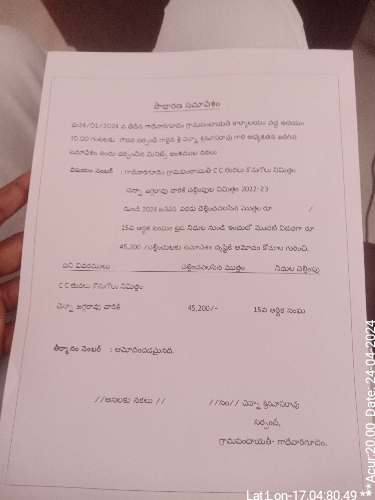 సాధారణ సమావేశం
ది:24/01/2024 వ తేదిన గాదేవారిగూడెం గ్రామపంచాయతీ కార్యాలయం వద్ద ఉదయం
10.00 గంటలకు గౌరవ సర్పంచ్ గారైన శ్రీ చెన్నా శ్రీనివాసరావు గారి అధ్యక్షతన జరిగిన
సమావేశం నందు చర్చించిన మినిట్స్ అంశముల నకలు
విషయం నెంబర్ : గాదేవారిగూడెం గ్రామపంచాయతీ C C తురలు కొనుగోలు నిమిత్తం
చెన్నా జగ్గారావు వారికి చెల్లింపుల నిమిత్తం 2022-23
నుండి 2024 జనవరి వరకు చెల్లించవలసిన మొత్తం రూ /
15వ ఆర్థిక సంఘం నిధుల నుండి ఇందులో మొదటి విడతగా రూ
45,200 /చెల్లించుటకు సమావేశం దృష్టికి ఆమోదం కోరుట గురించి.
పని వివరములు చెల్లించవలసిన మొత్తం నిధుల చెల్లింపు
C C తురలు కొనుగోలు నిమిత్తం
చెన్నా జగ్గారావు వారికి 45,200/- 15వ ఆర్థిక సంఘ
తీర్మానం నెంబర్ : ఆమోదించడమైనది.
//అసలకు నకలు // //సం// చెన్నా శ్రీనివాసరావు
సర్పంచ్,
గ్రామపంచాయతీ- గాదేవారిగూడెం.
Lat Lon-17.04:80.49 ***
Acur:20.00 Date: 24-04-2024